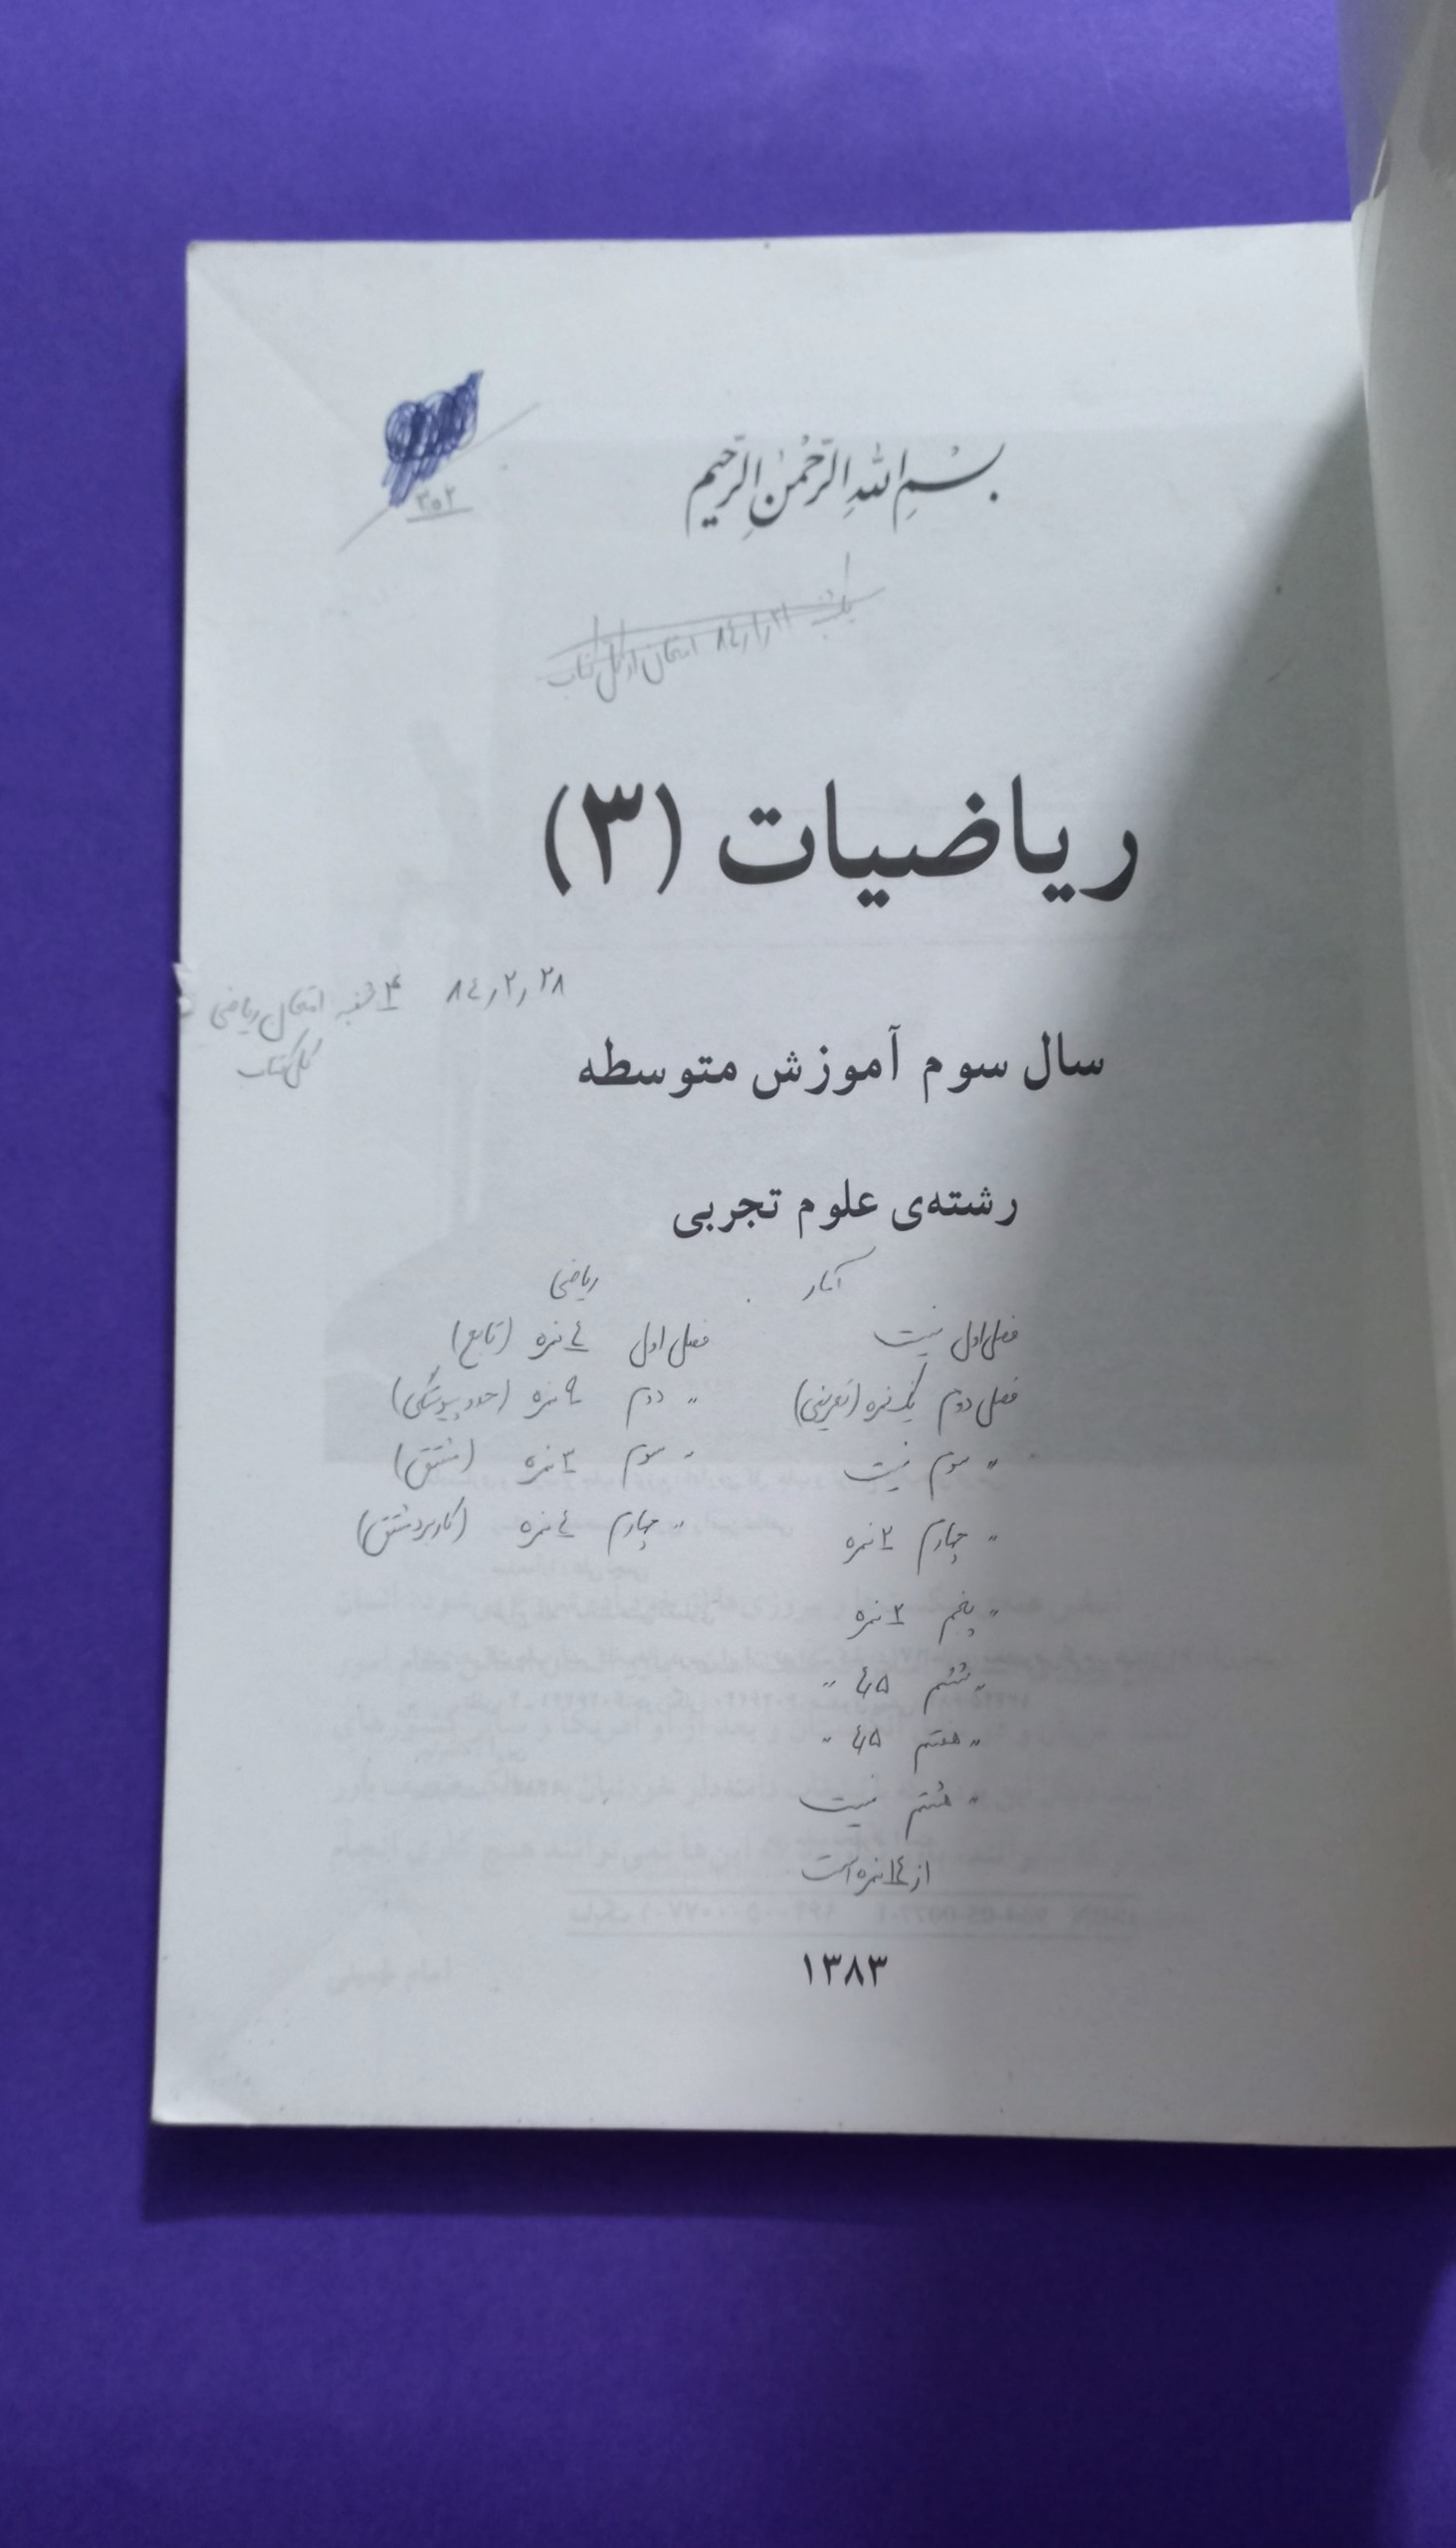 ۳۰۲
بِسْمِ اللّٰهِ الرَّحْمٰنِ الرَّحِيمِ
یکشنبه ۸٤٫۱٫۲۱ امتحان از کل کتاب
ریاضیات (۳)
۸٤٫۲٫۲۸ ۴ شنبه امتحان ریاضی
کل کتاب
سال سوم آموزش متوسطه
رشته‌ی علوم تجربی
آمار ریاضی
فصل اول نیست فصل اول ٤ نمره (تابع)
فصل دوم یک نمره (تعریفی) " دوم ۹ نمره (حدد پیوستگی)
" سوم نیست " سوم ۳ نمره (مشتق)
" چهارم ۲ نمره " چهارم ٤ نمره (کاربرد مشتق)
" پنجم ۲ نمره
" ششم ٤٫۵ "
" هفتم ٤٫۵ "
" هشتم نیست
از ۱٤ نمره است
۱۳۸۳